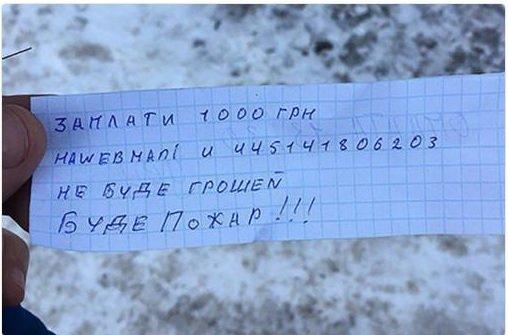 ЗАПЛАТИ 1000 ГРН
НА WEBMANI U 445141806203
НЕ БУДЕ ГРОШЕЙ
БУДЕ ПОЖАР!!!